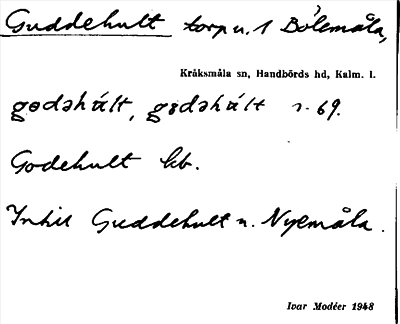 Guddehult torp u. 1 Bölemåla,
Kråksmåla sn, Handbörds hd, Kalm. l.
gɵdəhúlt, gɵdəhúlt s. 69.
Godehult kb.
Inhis Guddehult u. Nyemåla.
Ivar Modéer 1948